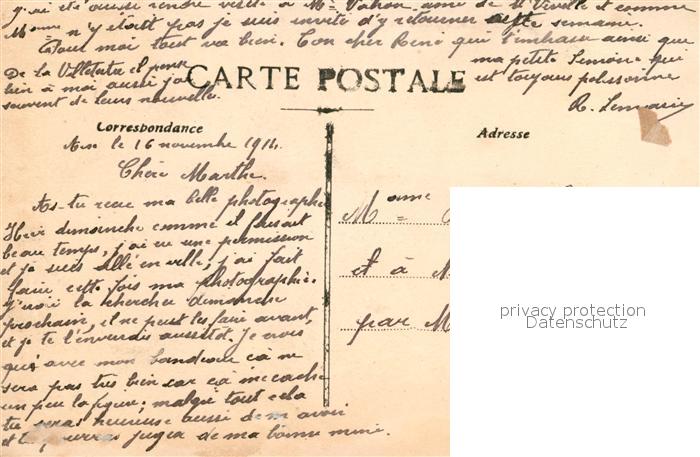 j'ai été aussi rendre visite à Mme Vahon amie de Mr Virolle et comme
Mme n'y était pas je suis invité d'y retourner cette semaine.
Pour moi tout va bien. Ton cher René qui t'embrasse ainsi que
ma petite Simone qui
est toujours polissonne
De la Villetatre il pense
bien à moi aussi j'ai
souvent de leurs nouvelles.
CARTE POSTALE
Correspondance
Adresse
le 16 novembre 1914.
Chère Marthe.
As-tu reçue ma belle photographie
Hier dimanche comme il faisait
beau temps, j'ai eu une permission
et je suis allé en ville, j'ai fait
faire cette fois ma photographie.
J'irai la chercher dimanche
prochain, il ne peut les faire avant,
et je te l'enverrai aussitôt. Je crois
qu'avec mon bandeau ça ne
sera pas très bien car ça me cache
un peu la figure; malgré tout cela
tu seras heureuse aussi de m'avoir
et tu pourras juger de ma bonne mine.
Madame
et à
par
privacy protection
Datenschutz